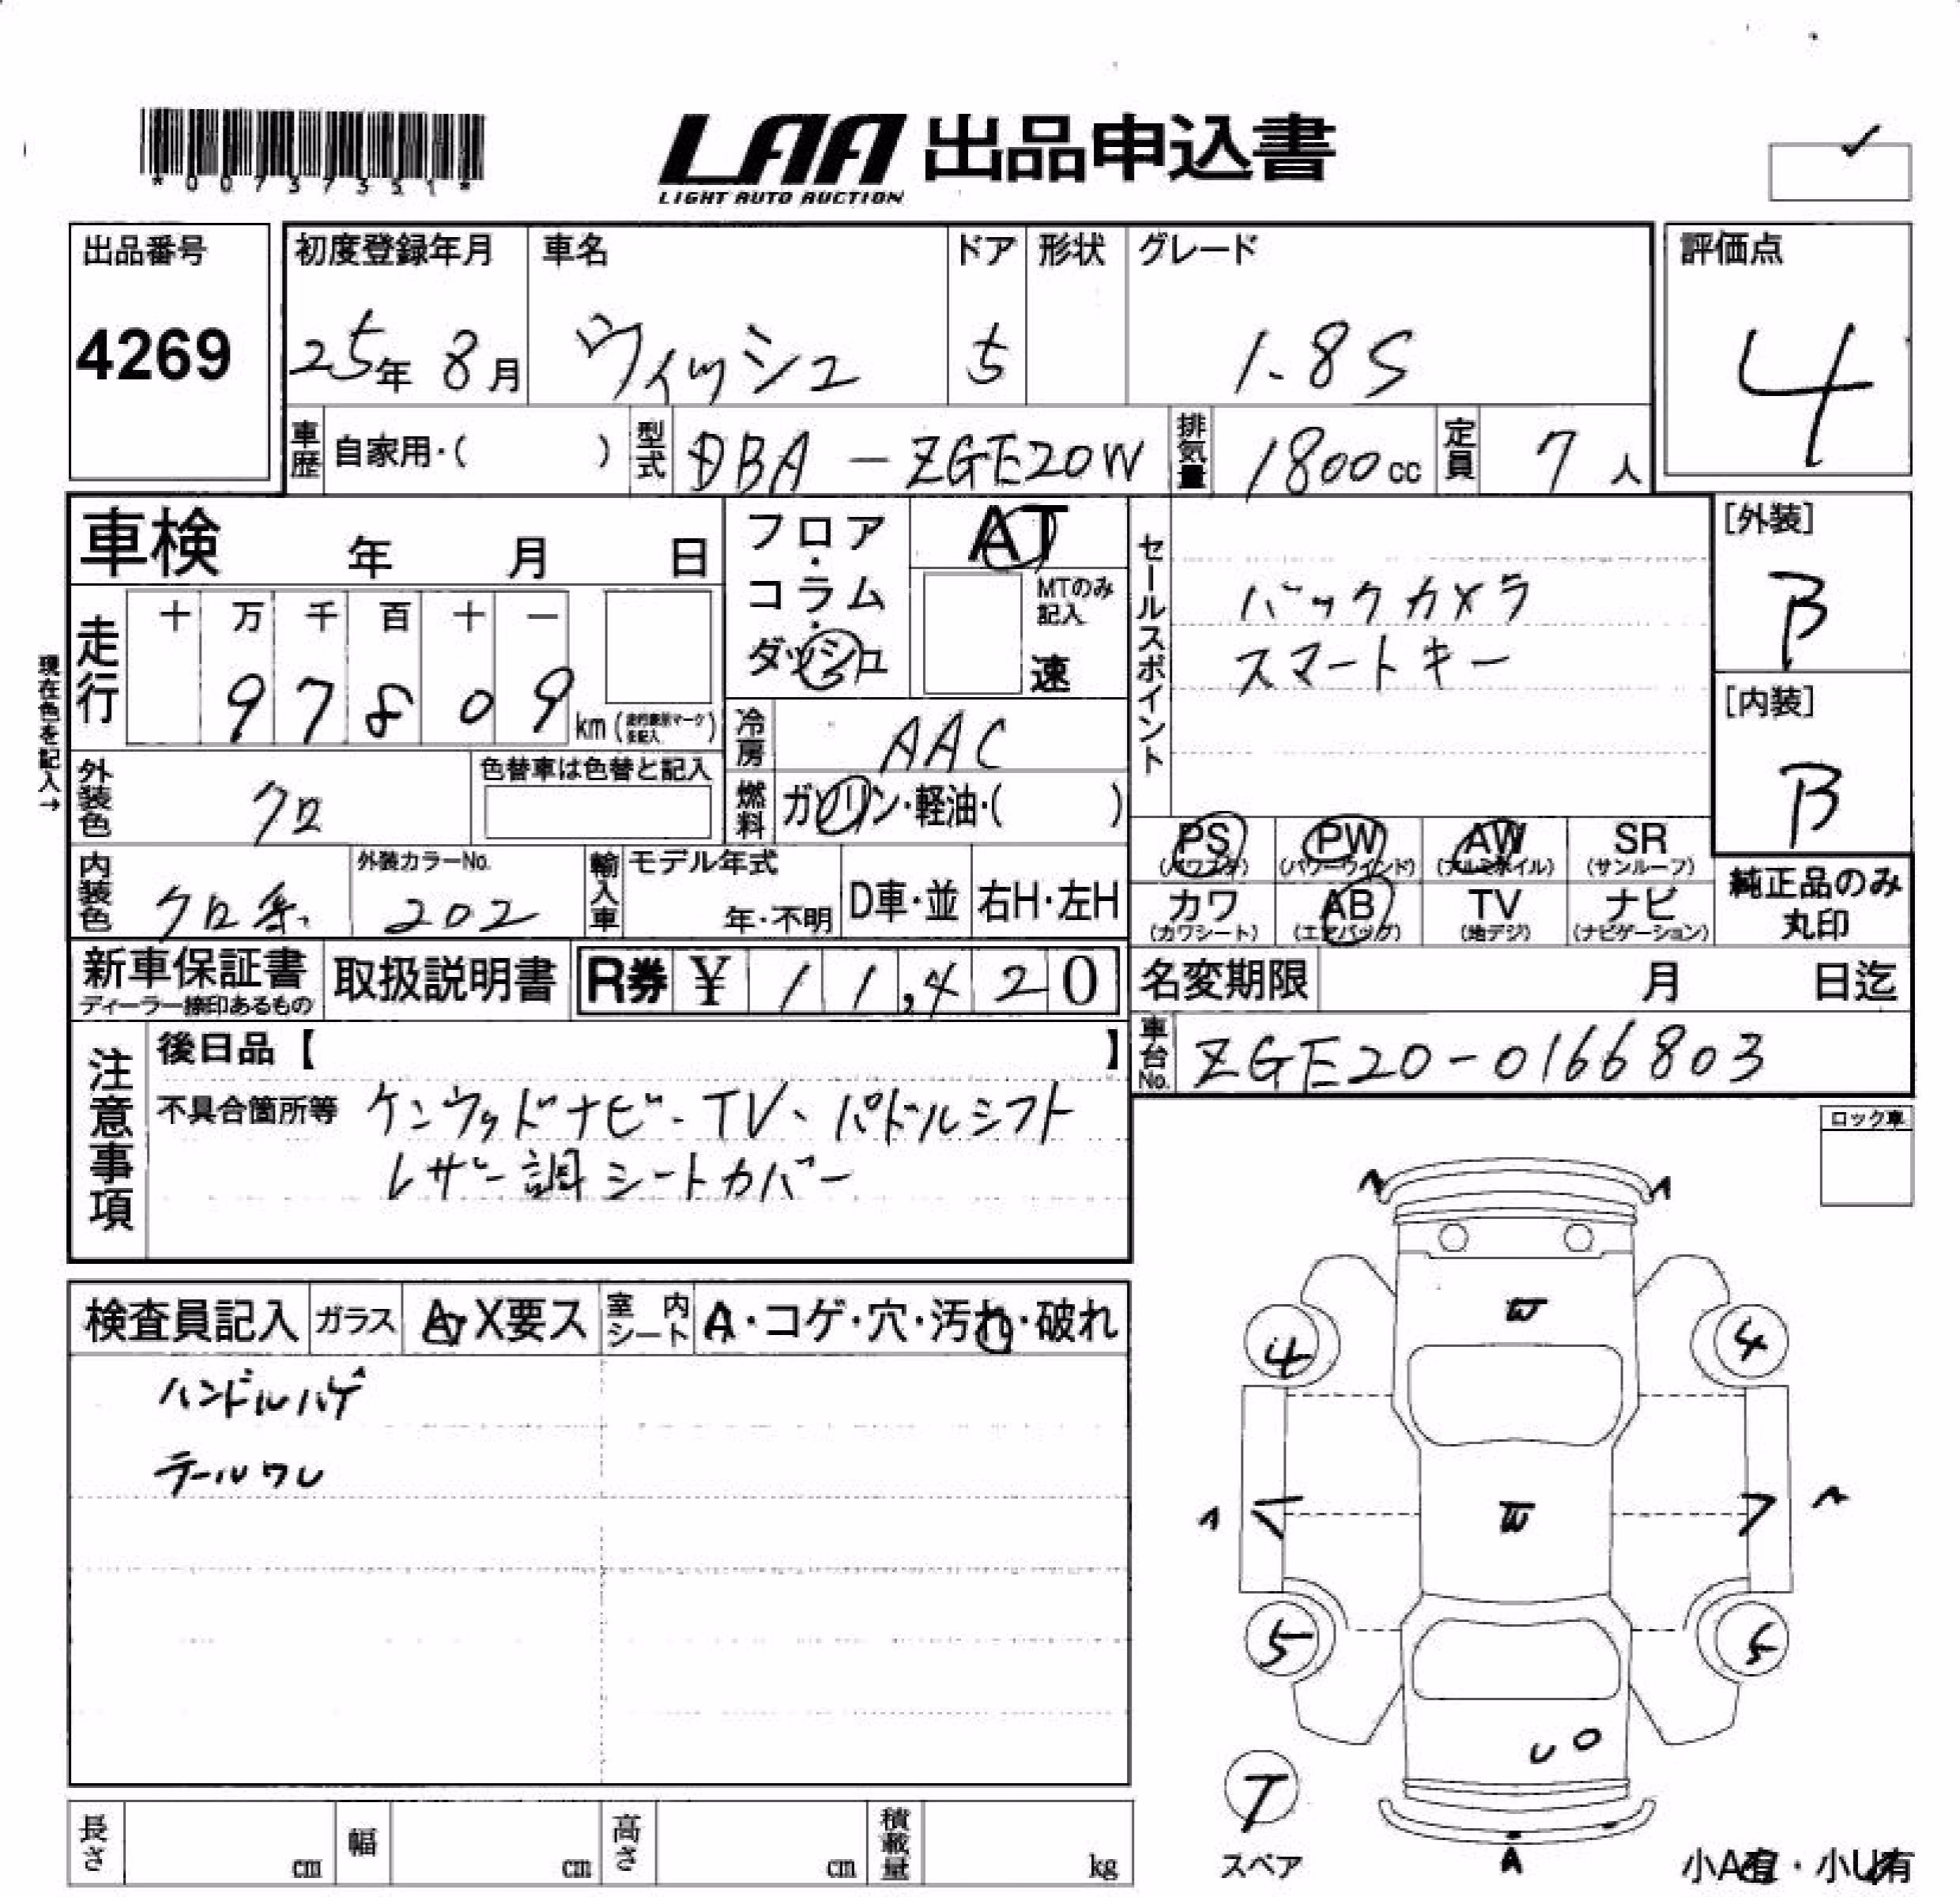 *00737351*
LAA 出品申込書
LIGHT AUTO AUCTION
出品番号 初度登録年月 車名 ドア 形状 グレード 評価点
4269 25年 8月 ウィッシュ 5 1.8S 4
車歴 自家用・( ) 型式 DBA-ZGE20W 排気量 1800cc 定員 7人
車検 年 月 日
フロア・コラム・ダッシュ
AT
MTのみ記入
速
セールスポイント
バックカメラ
スマートキー
[外装]
B
[内装]
B
現在色を記入→
走行 十 万 千 百 十 一
9 7 8 0 9 km
冷房 AAC
外装色 クロ 色替車は色替と記入
燃料 ガソリン・軽油・( )
PS PW AW SR
(パワステ) (パワーウインド) (アルミホイル) (サンルーフ)
カワ AB TV ナビ
(カワシート) (エアバッグ) (地デジ) (ナビゲーション)
純正品のみ
丸印
内装色 クロ系 外装カラーNo. 202 輸入車 モデル年式 年・不明 D車・並 右H・左H
新車保証書 取扱説明書 R券 ¥ 11,420
ディーラー捺印あるもの
名変期限 月 日迄
車台No. ZGE20-0166803
注意事項
後日品【 】
不具合箇所等 ケンウッドナビ・TV、パドルシフト
レザー調シートカバー
ロック車
検査員記入 ガラス A・X要ス 室内シート A・コゲ・穴・汚れ・破れ
ハンドルハゲ
テールワレ
A A
W
4 4
A A
W
5 5
U O
T
スペア
A
小A有・小U有
長さ cm 幅 cm 高さ cm 積載量 kg